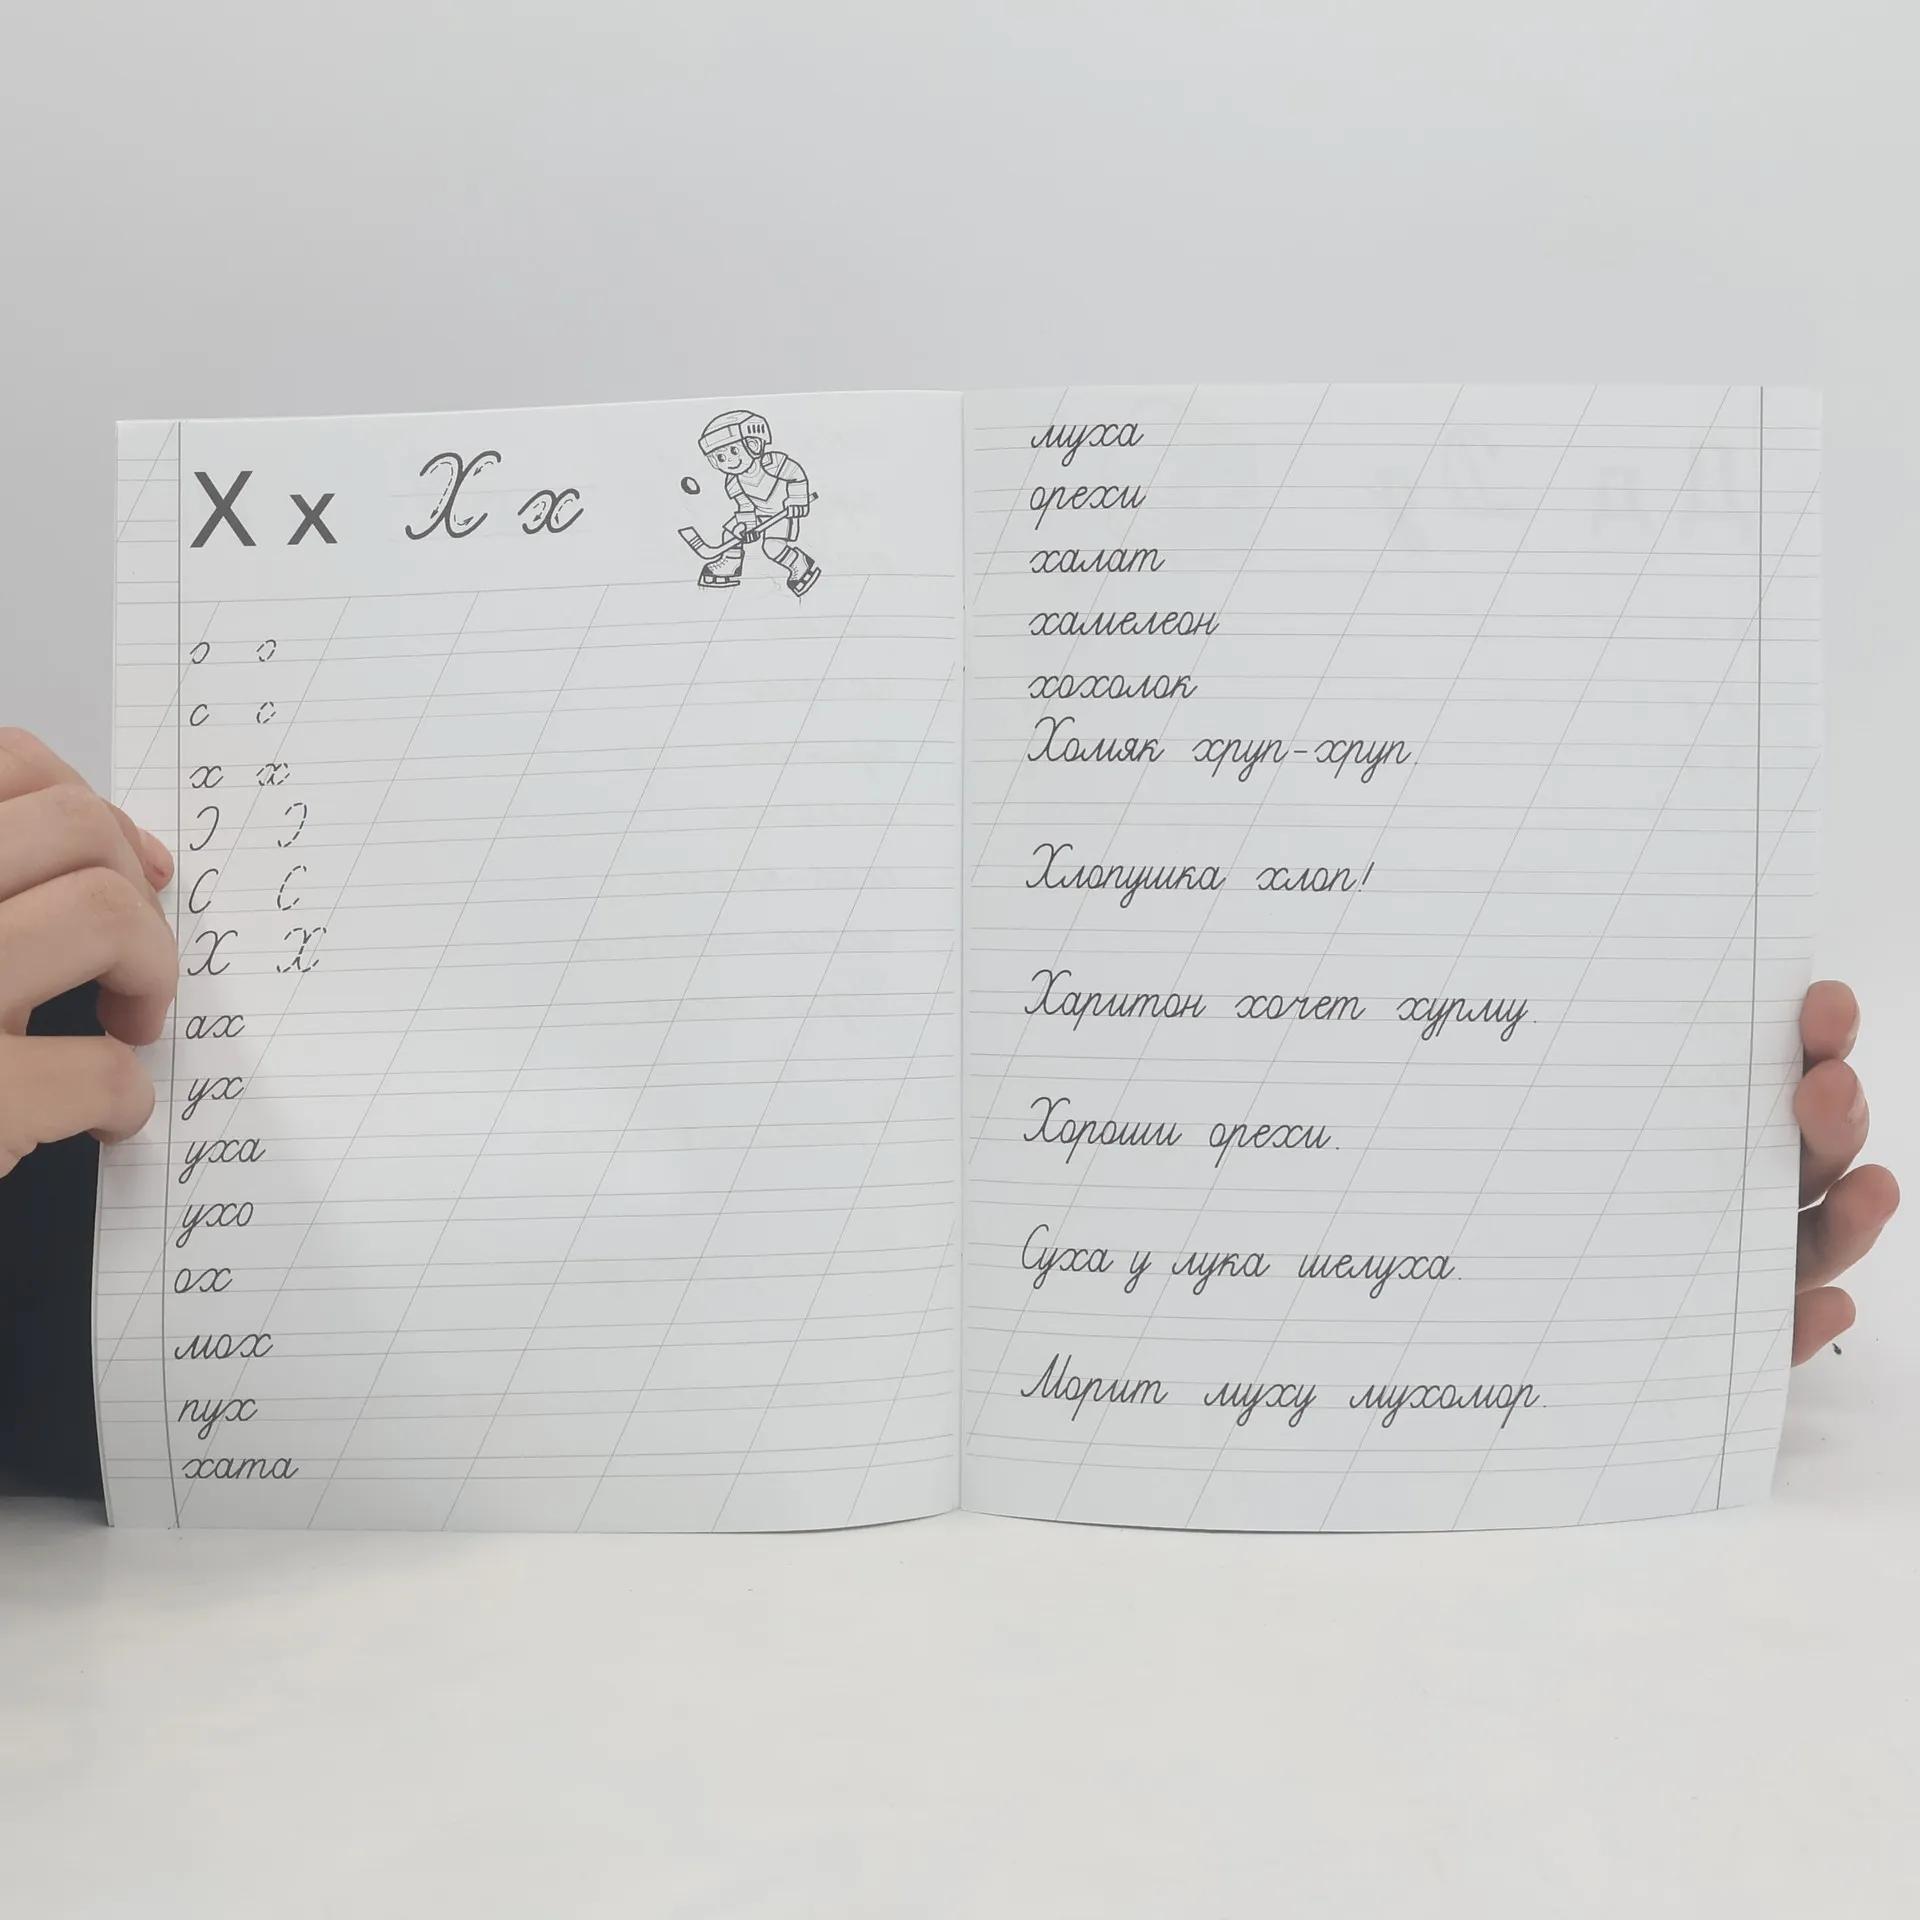 Х х Х х
ɔ ɔ
с с
х х
Ɔ Ɔ
С С
Х Х
ах
ух
уха
ухо
ох
мох
пух
хата
муха
орехи
халат
хамелеон
хохолок
Хомяк хруп-хруп.
Хлопушка хлоп!
Харитон хочет хурму.
Хороши орехи.
Суха у лука шелуха.
Морит муху мухомор.